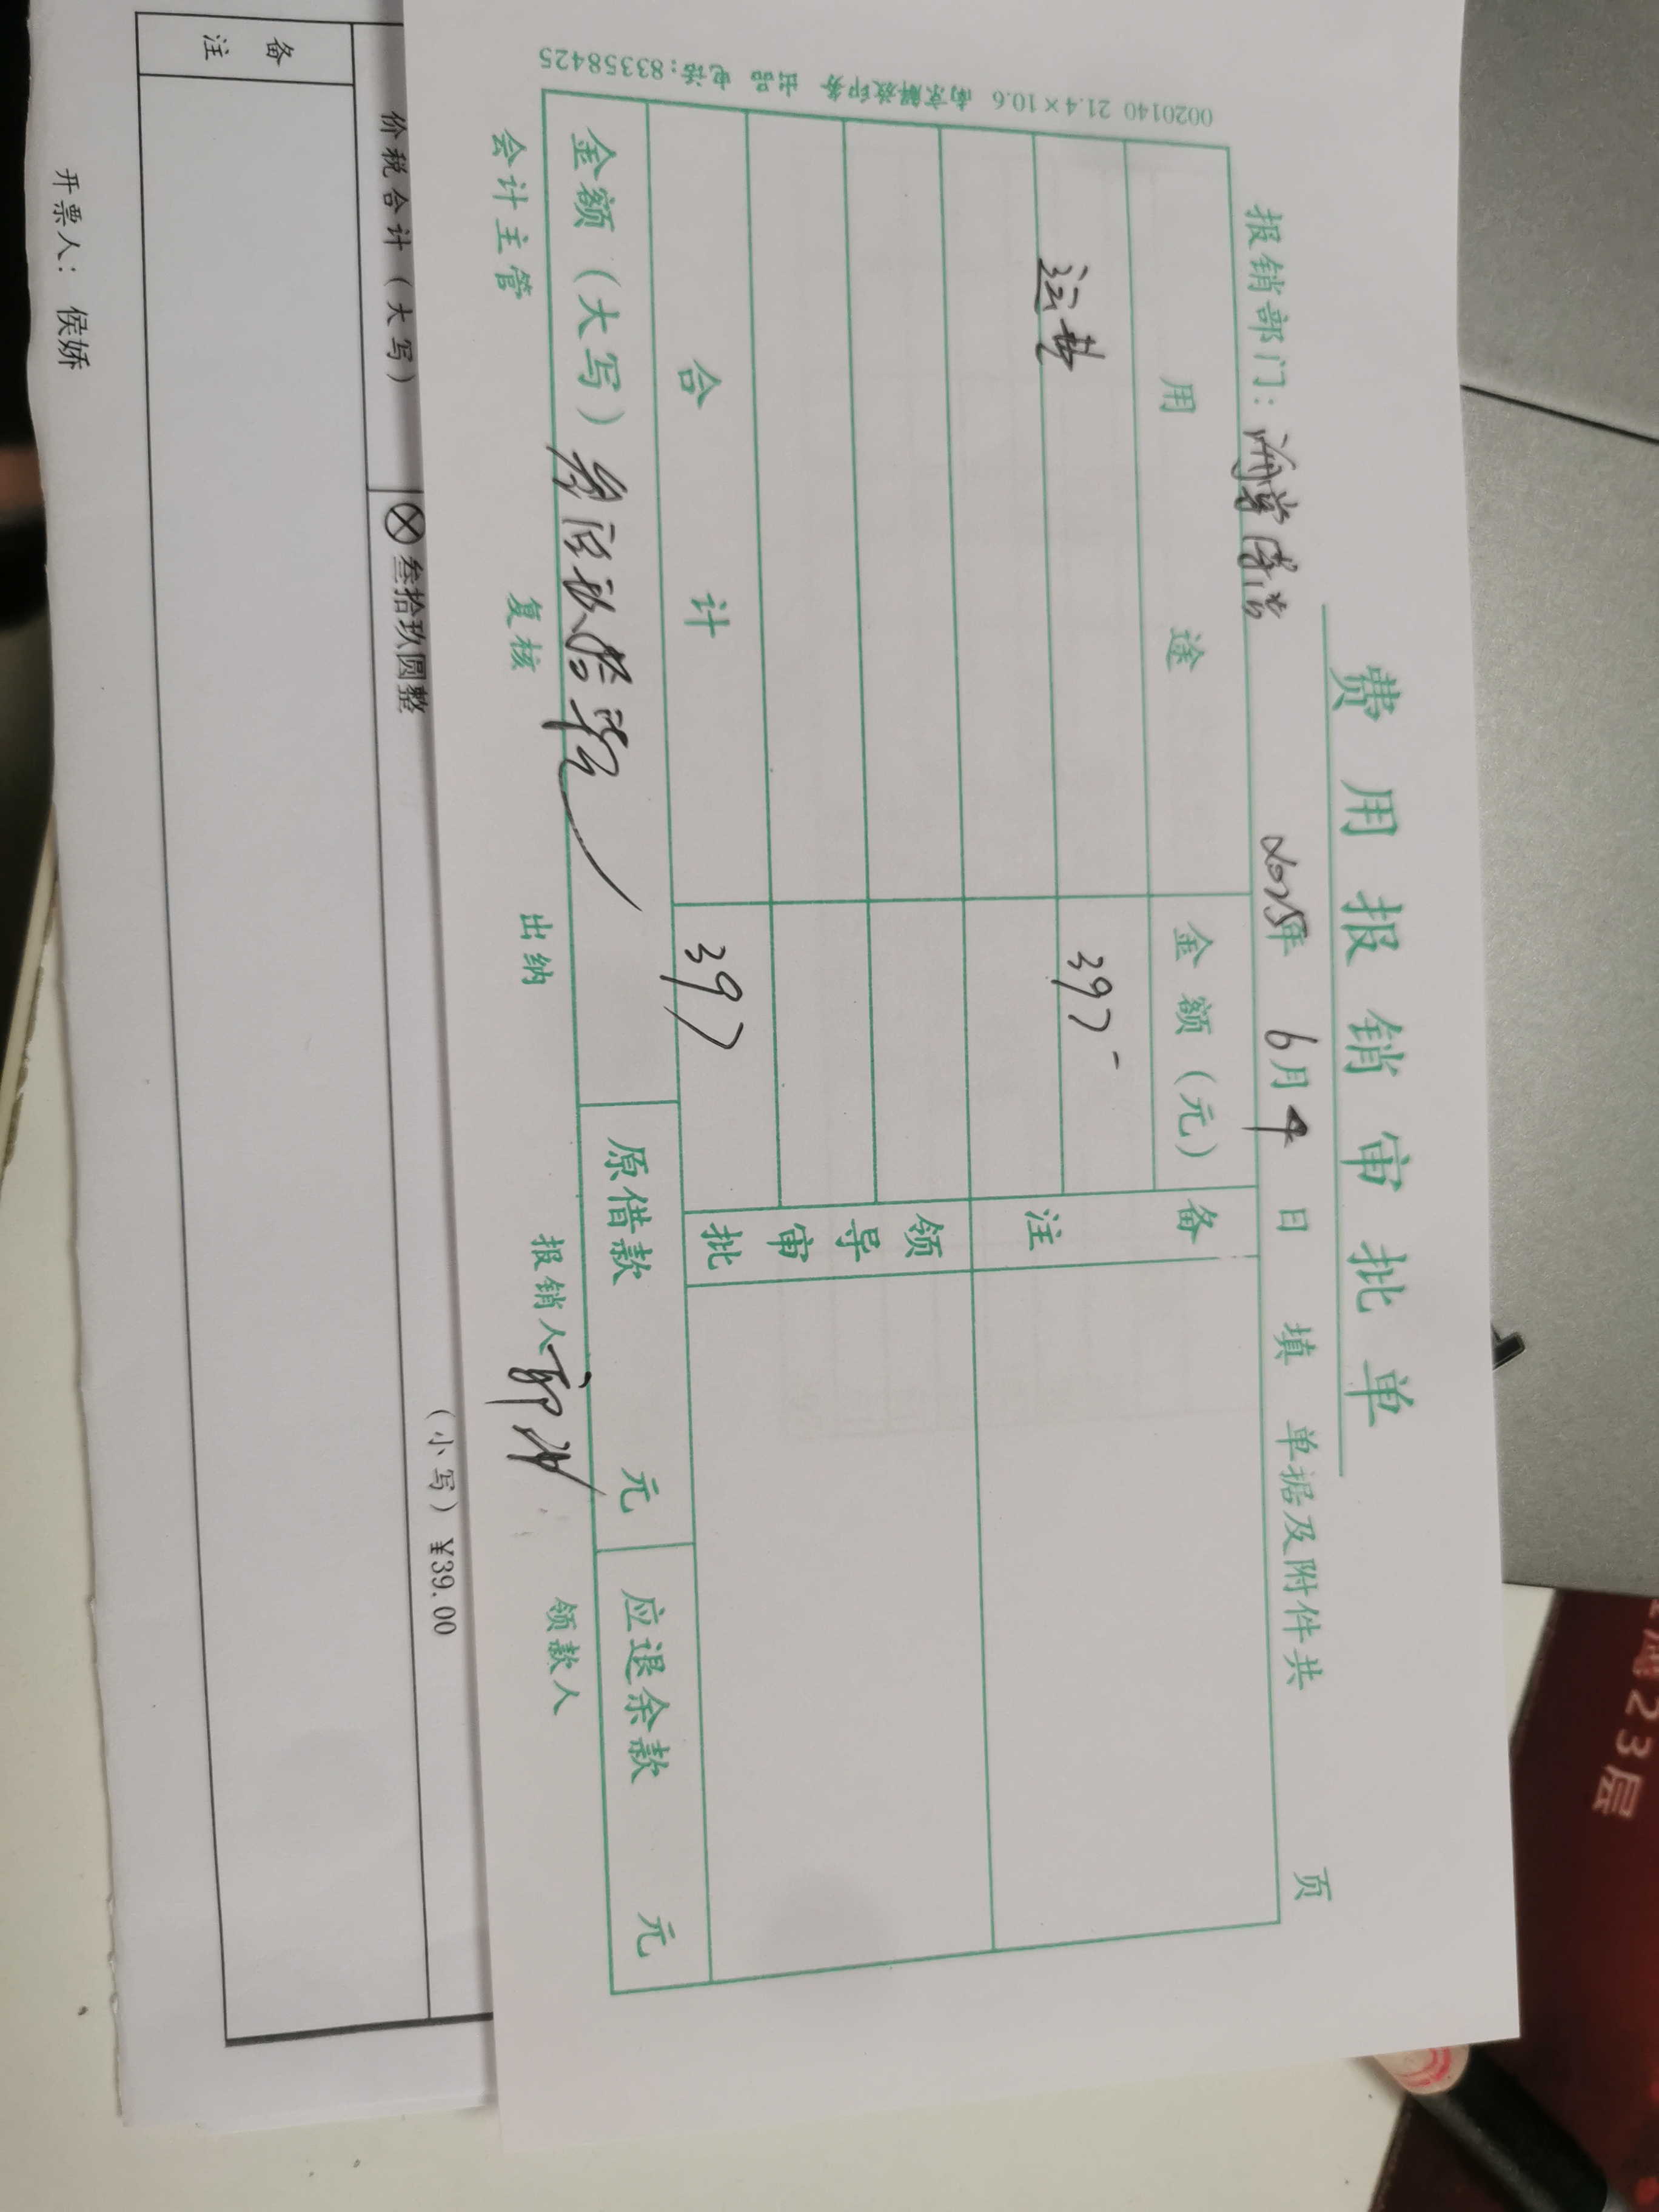 费用报销审批单
报销部门： 2025年 6月 4 日 填 单据及附件共 页
用 途 金 额（元） 备注
运费 397-
领导审批
合 计 397
金额（大写）叁佰玖拾柒元 原借款 元 应退余款 元
会计主管 复核 出纳 报销人 领款人
0020140 21.4×10.6 南京解放印务 出品 电话:83358425
价税合计（大写） ⊗叁拾玖圆整 （小写）¥39.00
备注
开票人：侯娇
23层